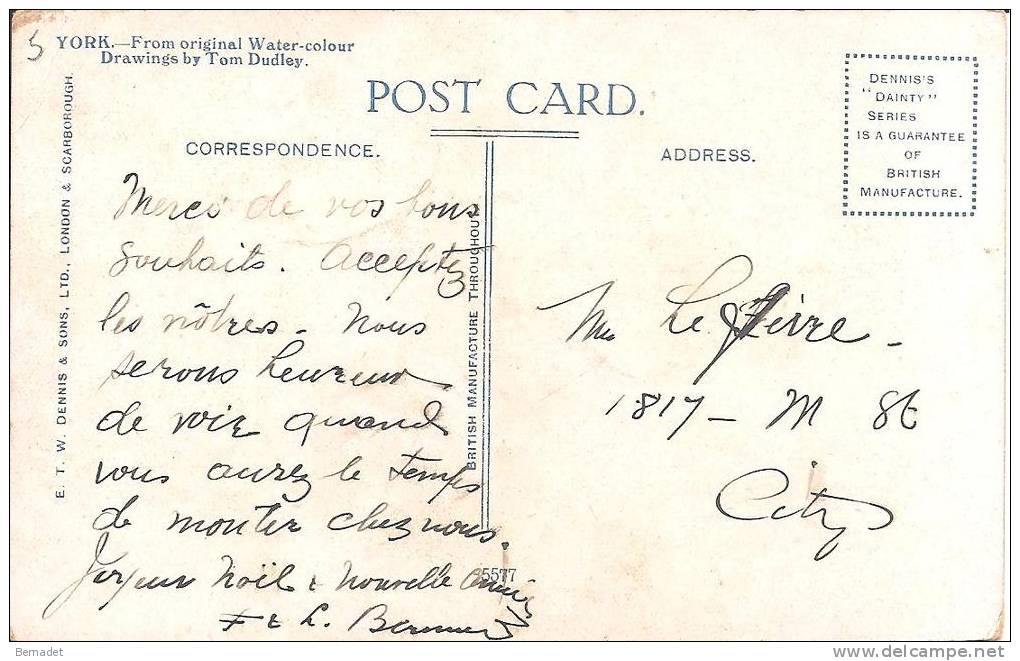 5
YORK.—From original Water-colour
Drawings by Tom Dudley.
POST CARD.
DENNIS'S
"DAINTY"
SERIES
IS A GUARANTEE
OF
BRITISH
MANUFACTURE.
CORRESPONDENCE.
ADDRESS.
E. T. W. DENNIS & SONS, LTD., LONDON & SCARBOROUGH.
BRITISH MANUFACTURE THROUGHOUT
Merci de vos bons
souhaits. Acceptez
les nôtres - Nous
serons heureux
de voir quand
vous aurez le temps
de monter chez nous.
Joyeux Noël & Nouvelle Année
F & L.
5577
Le Fèvre -
1817 - M St
City
Bernadet
http://www.delcampe.net